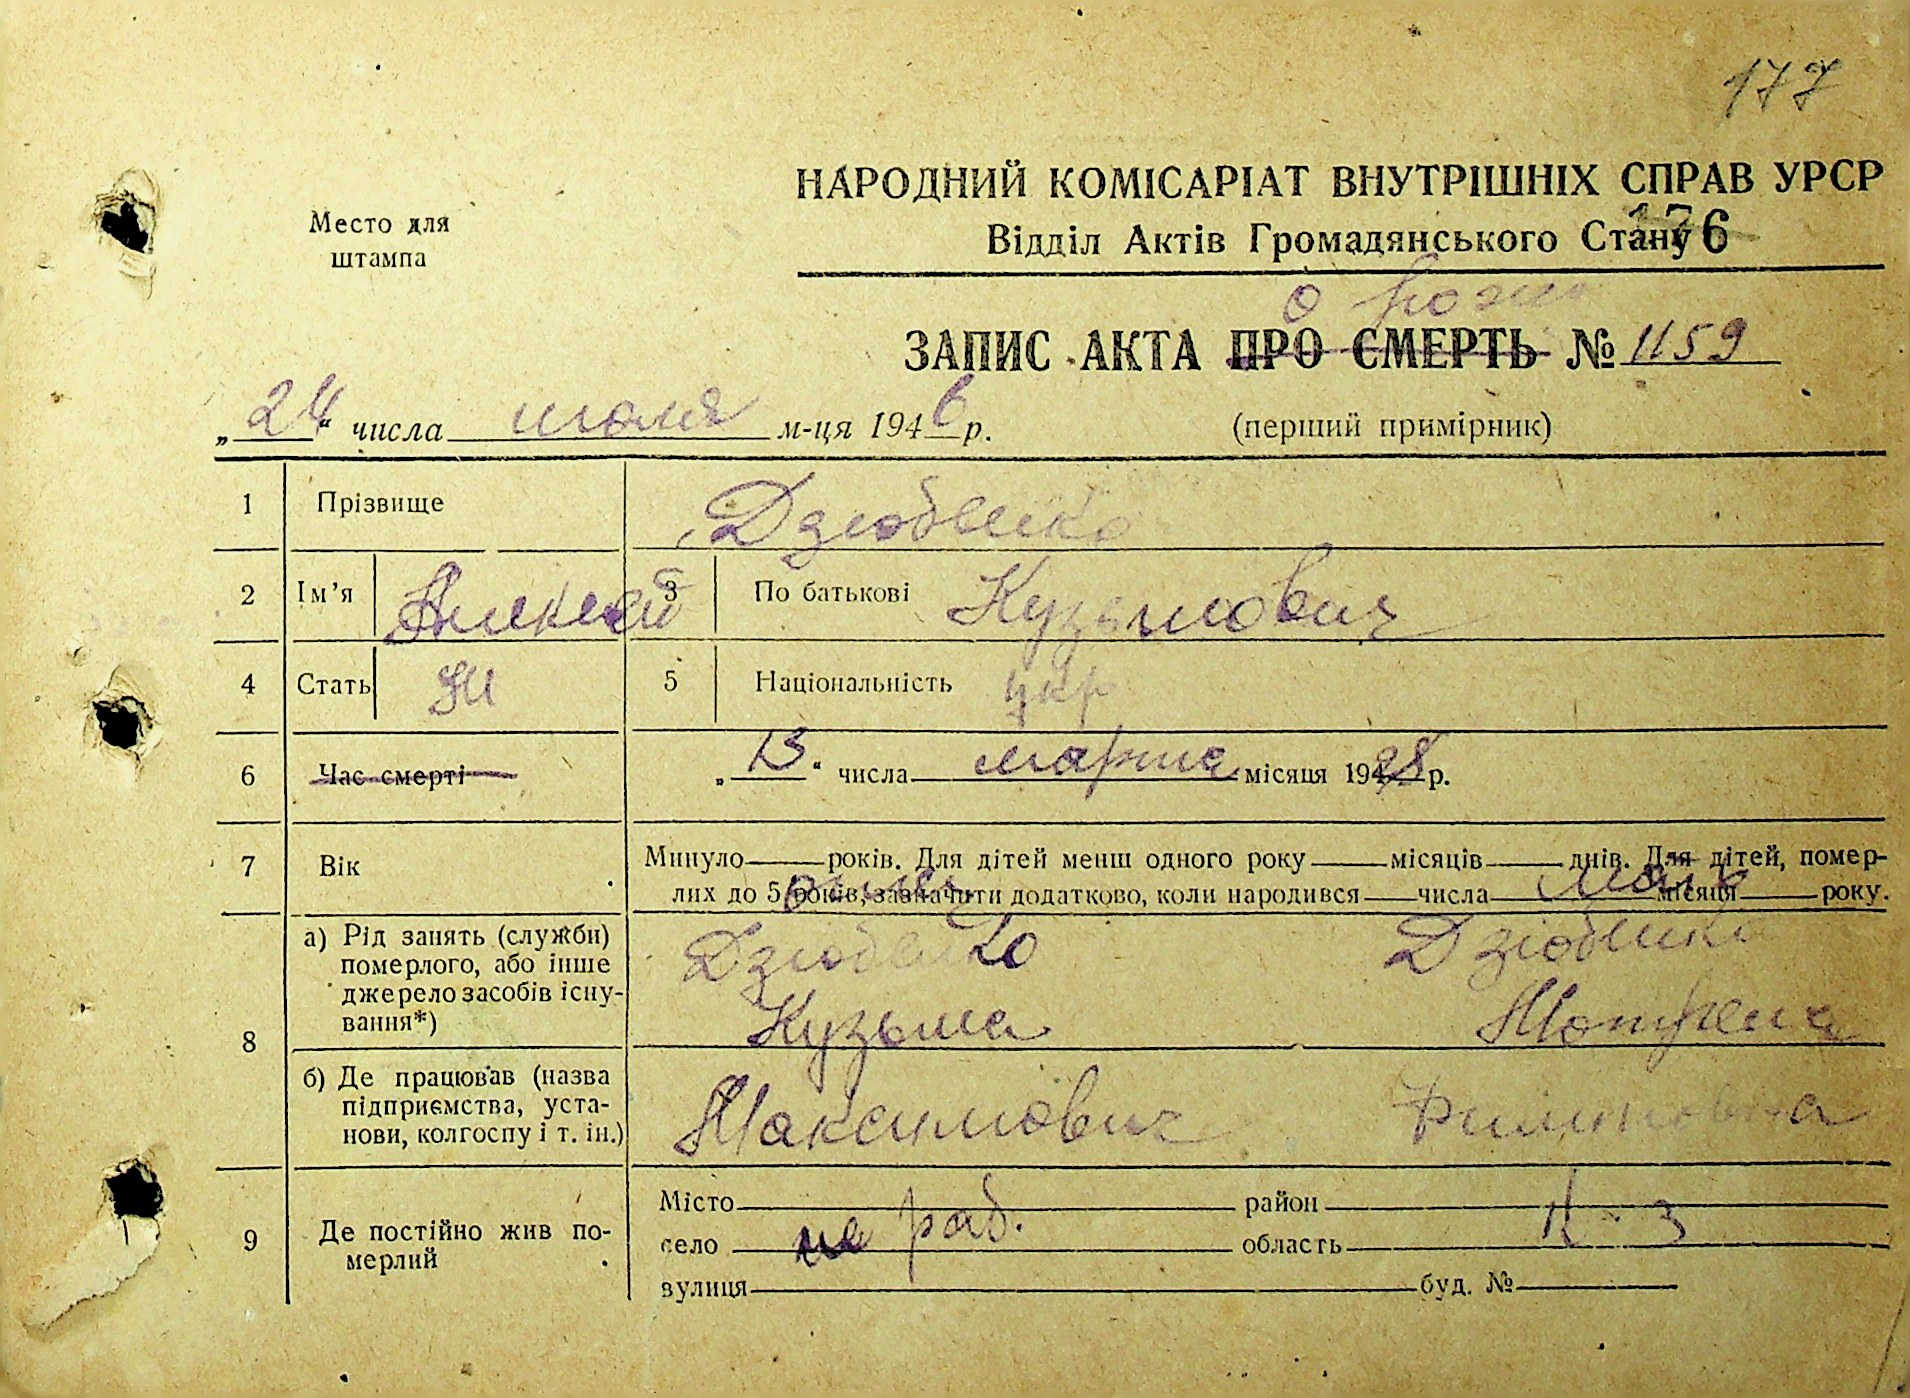 177
НАРОДНИЙ КОМІСАРІАТ ВНУТРІШНІХ СПРАВ УРСР
Место для
штампа
Відділ Актів Громадянського Стану 176
о рожд
ЗАПИС АКТА ПРО СМЕРТЬ № 1159
„24“ числа июля м-ця 1946 р. (перший примірник)
1 Прізвище Дзюбенко
2 Ім’я Алексей 3 По батькові Кузьмович
4 Стать М 5 Національність укр
6 Час смерті „13“ числа марта місяця 1928 р.
7 Вік Минуло років. Для дітей менш одного року місяців днів. Для дітей, помер-
лих до 5 років, зазначити додатково, коли народився числа місяця року.
отец мать
8 а) Рід занять (служби)
померлого, або інше
джерело засобів існу-
вання*)
Дзюбенко Дзюбенко
Кузьма Мотрена
б) Де працював (назва
підприємства, уста-
нови, колгоспу і т. ін.)
Максимович Филиповна
9 Де постійно жив по-
мерлий
Місто район
не раб. к-з
село область
вулиця буд. №